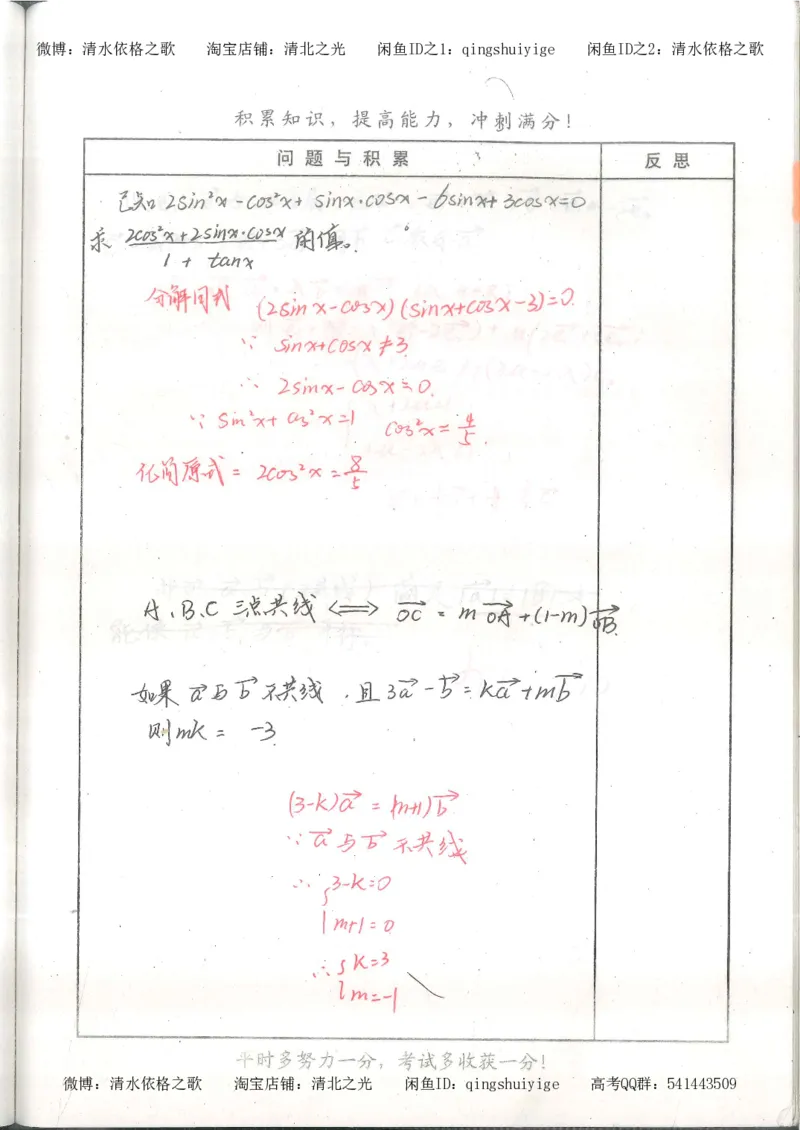 微博：清水依格之歌 淘宝店铺：清北之光 闲鱼ID之1：qingshuiyige 闲鱼ID之2：清水依格之歌
积累知识，提高能力，冲刺满分！
问题与积累 反思
已知 2sin²x - cos²x + sinx·cosx - 6sinx + 3cosx = 0
求 (2cos²x + 2sinx·cosx)/(1 + tanx) 的值。
分解因式 (2sinx - cosx)(sinx + cosx - 3) = 0.
∵ sinx + cosx ≠ 3
∴ 2sinx - cosx = 0.
∵ sin²x + cos²x = 1 cos²x = 4/5.
化简原式 = 2cos²x = 8/5
A、B、C 三点共线 ⟺ OC→ = m OA→ + (1-m) OB→.
如果 a→ 与 b→ 不共线，且 3a→ - b→ = ka→ + mb→
则 mk = -3
(3-k)a→ = (m+1)b→
∵ a→ 与 b→ 不共线
∴ { 3-k=0
m+1=0
∴ { k=3
m=-1
平时多努力一分，考试多收获一分！
微博：清水依格之歌 淘宝店铺：清北之光 闲鱼ID：qingshuiyige 高考QQ群：541443509